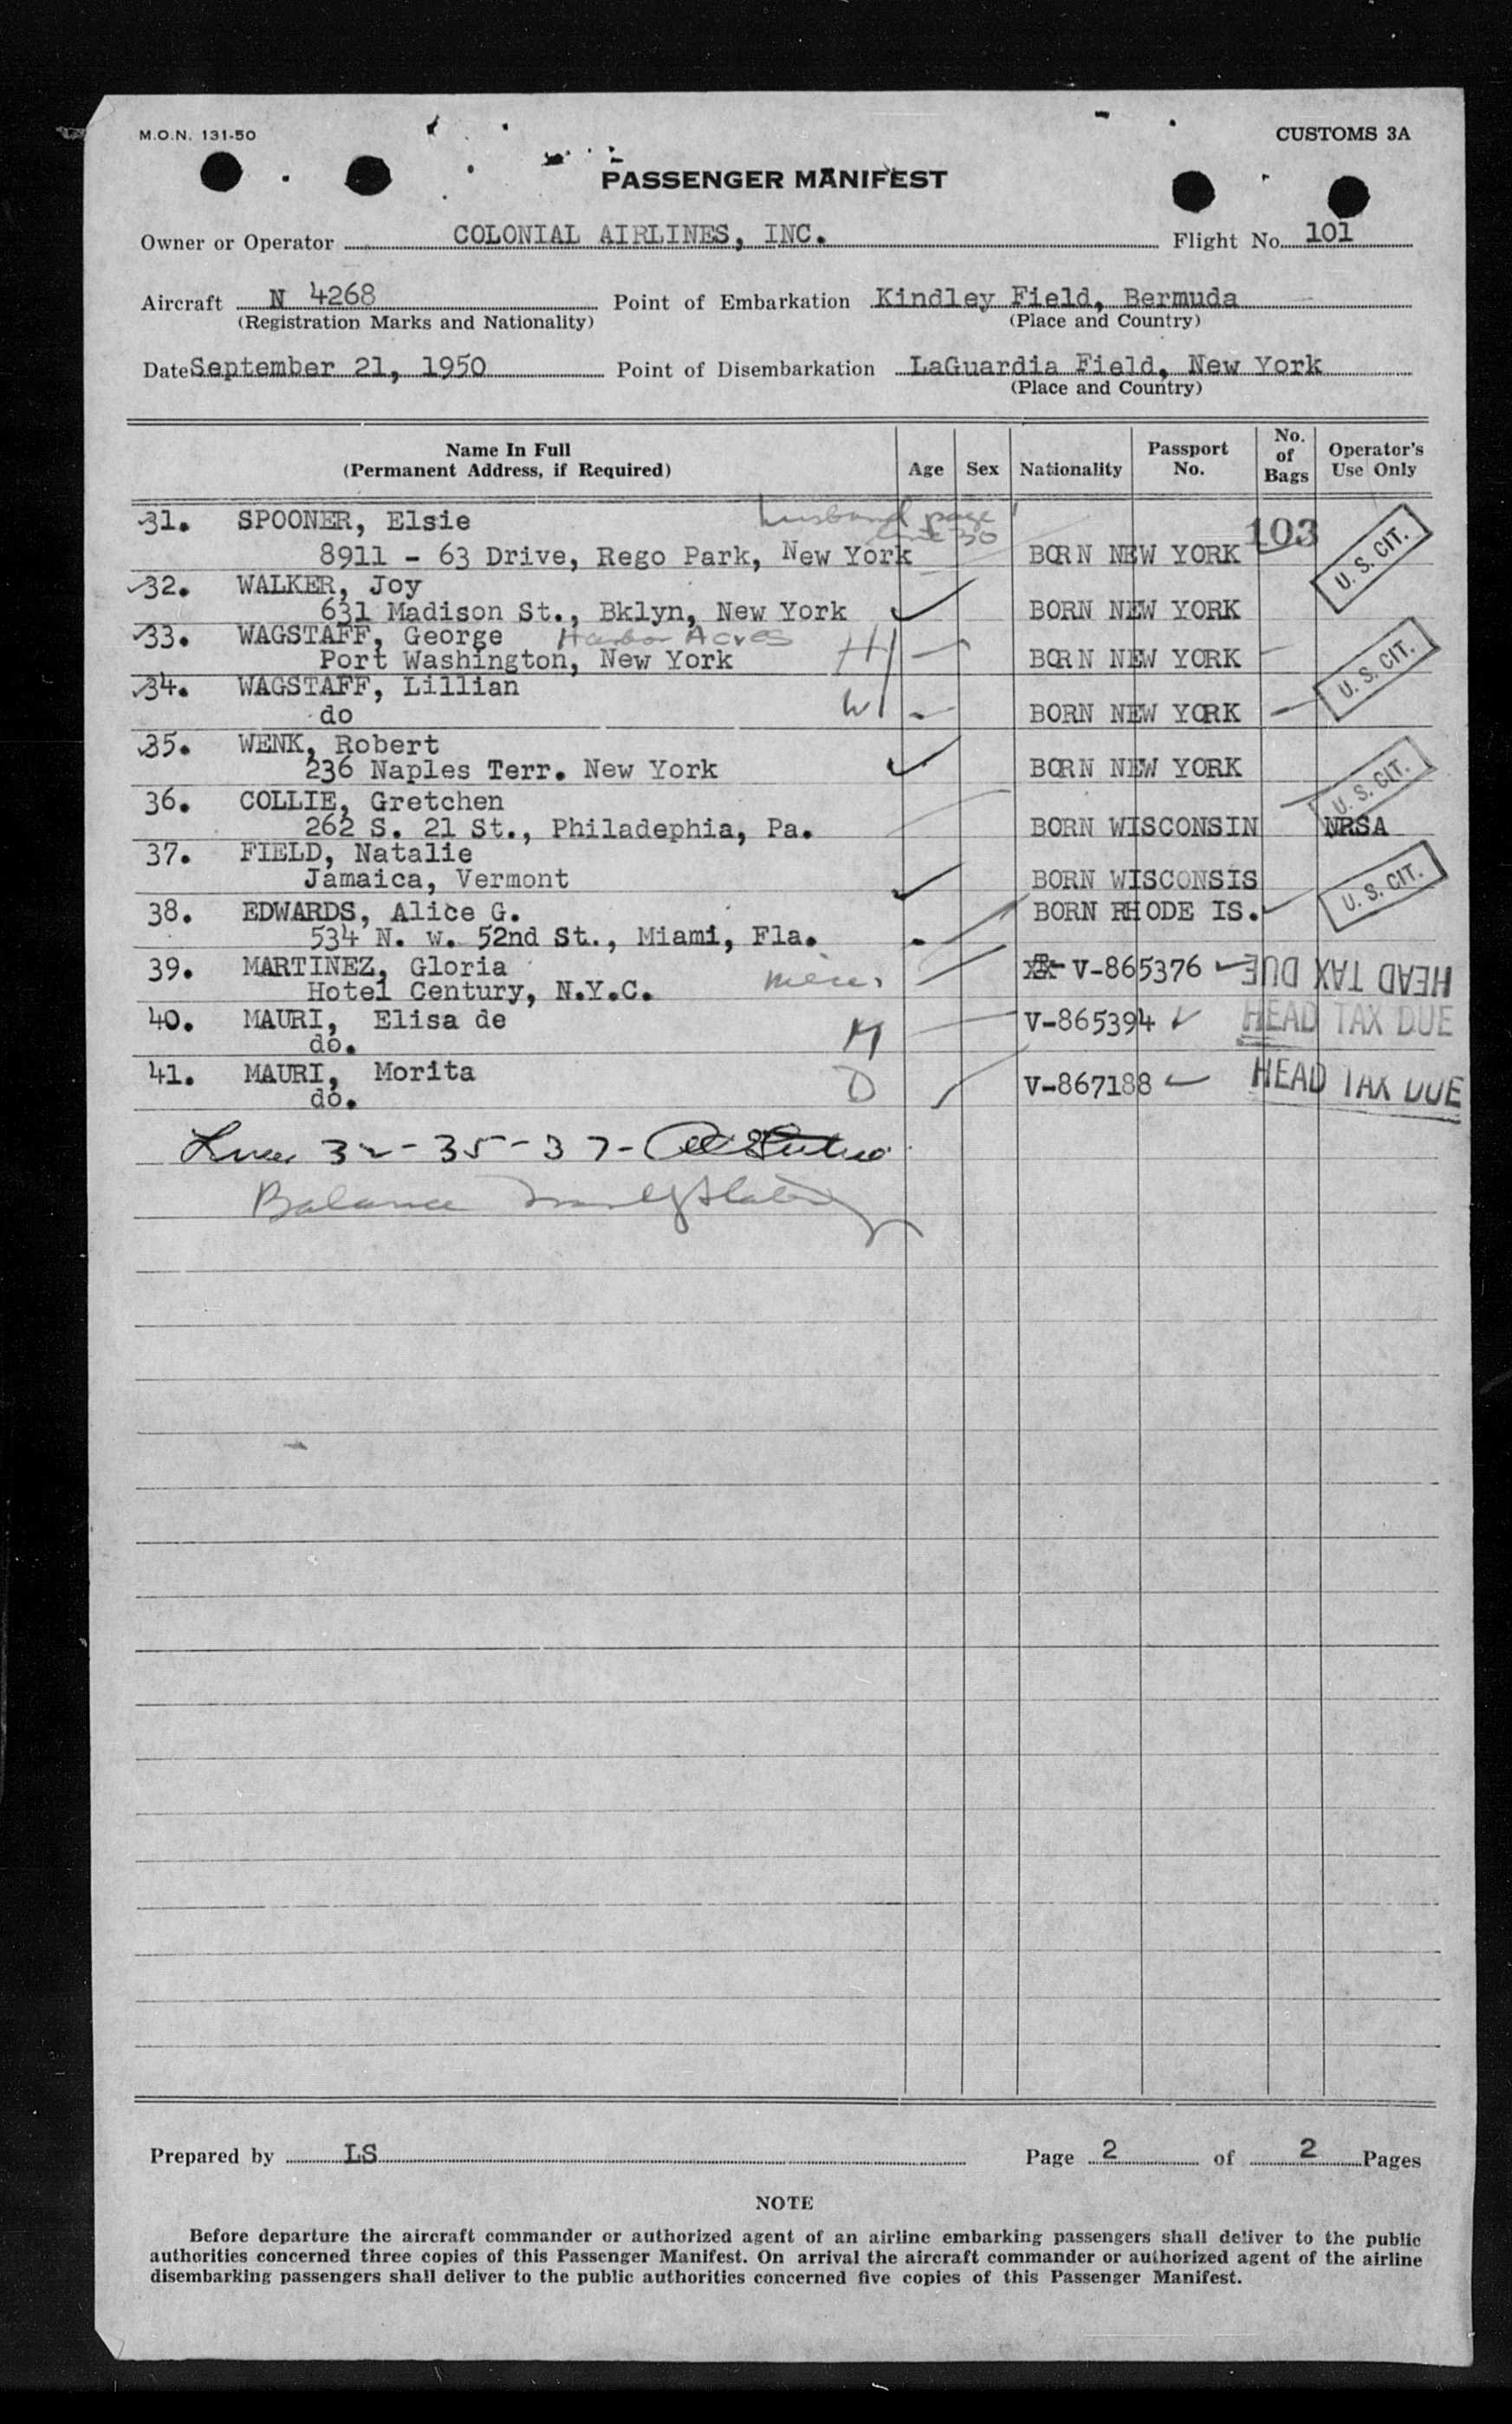 M.O.N. 131-50
CUSTOMS 3A
PASSENGER MANIFEST
Owner or Operator COLONIAL AIRLINES, INC. Flight No. 101
Aircraft N 4268 Point of Embarkation Kindley Field, Bermuda
(Registration Marks and Nationality) (Place and Country)
Date September 21, 1950 Point of Disembarkation LaGuardia Field, New York
(Place and Country)
Name In Full (Permanent Address, if Required) Age Sex Nationality Passport No. No. of Bags Operator's Use Only
husband page 1
line 30
31. SPOONER, Elsie 103
8911 - 63 Drive, Rego Park, New York BORN NEW YORK U. S. CIT.
32. WALKER, Joy
631 Madison St., Bklyn, New York BORN NEW YORK
33. WAGSTAFF, George Harbor Acres
Port Washington, New York H BORN NEW YORK U. S. CIT.
34. WAGSTAFF, Lillian
do W BORN NEW YORK
35. WENK, Robert
236 Naples Terr. New York BORN NEW YORK
36. COLLIE, Gretchen U. S. CIT.
262 S. 21 St., Philadephia, Pa. BORN WISCONSIN NRSA
37. FIELD, Natalie
Jamaica, Vermont BORN WISCONSIS U. S. CIT.
38. EDWARDS, Alice G. BORN RHODE IS.
534 N. w. 52nd St., Miami, Fla.
39. MARTINEZ, Gloria V-865376 HEAD TAX DUE
Hotel Century, N.Y.C.
40. MAURI, Elisa de V-865394 HEAD TAX DUE
do. M
41. MAURI, Morita V-867188 HEAD TAX DUE
do. D
Lines 32-35-37-
Balance
Prepared by LS Page 2 of 2 Pages
NOTE
Before departure the aircraft commander or authorized agent of an airline embarking passengers shall deliver to the public
authorities concerned three copies of this Passenger Manifest. On arrival the aircraft commander or authorized agent of the airline
disembarking passengers shall deliver to the public authorities concerned five copies of this Passenger Manifest.